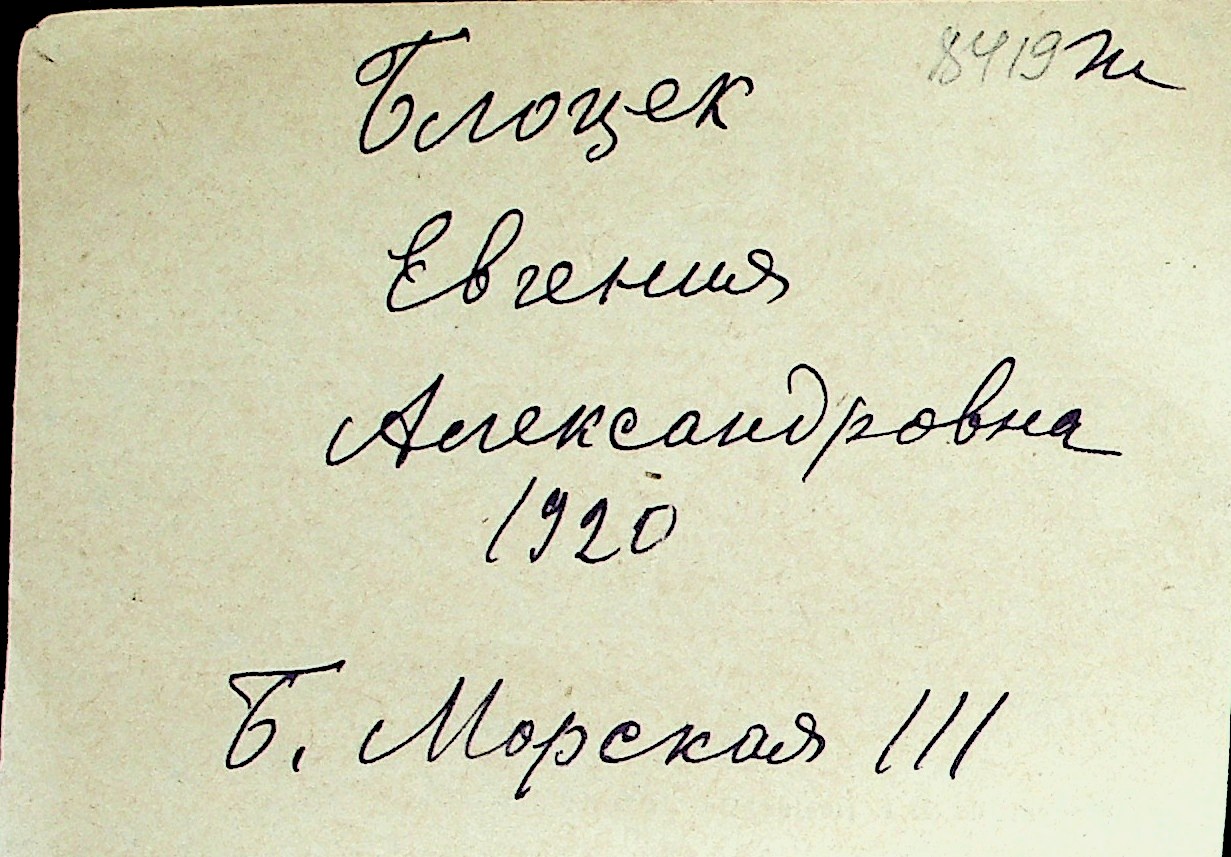 8419 Ж
Блоцек
Евгения
Александровна
1920
Б. Морская 111